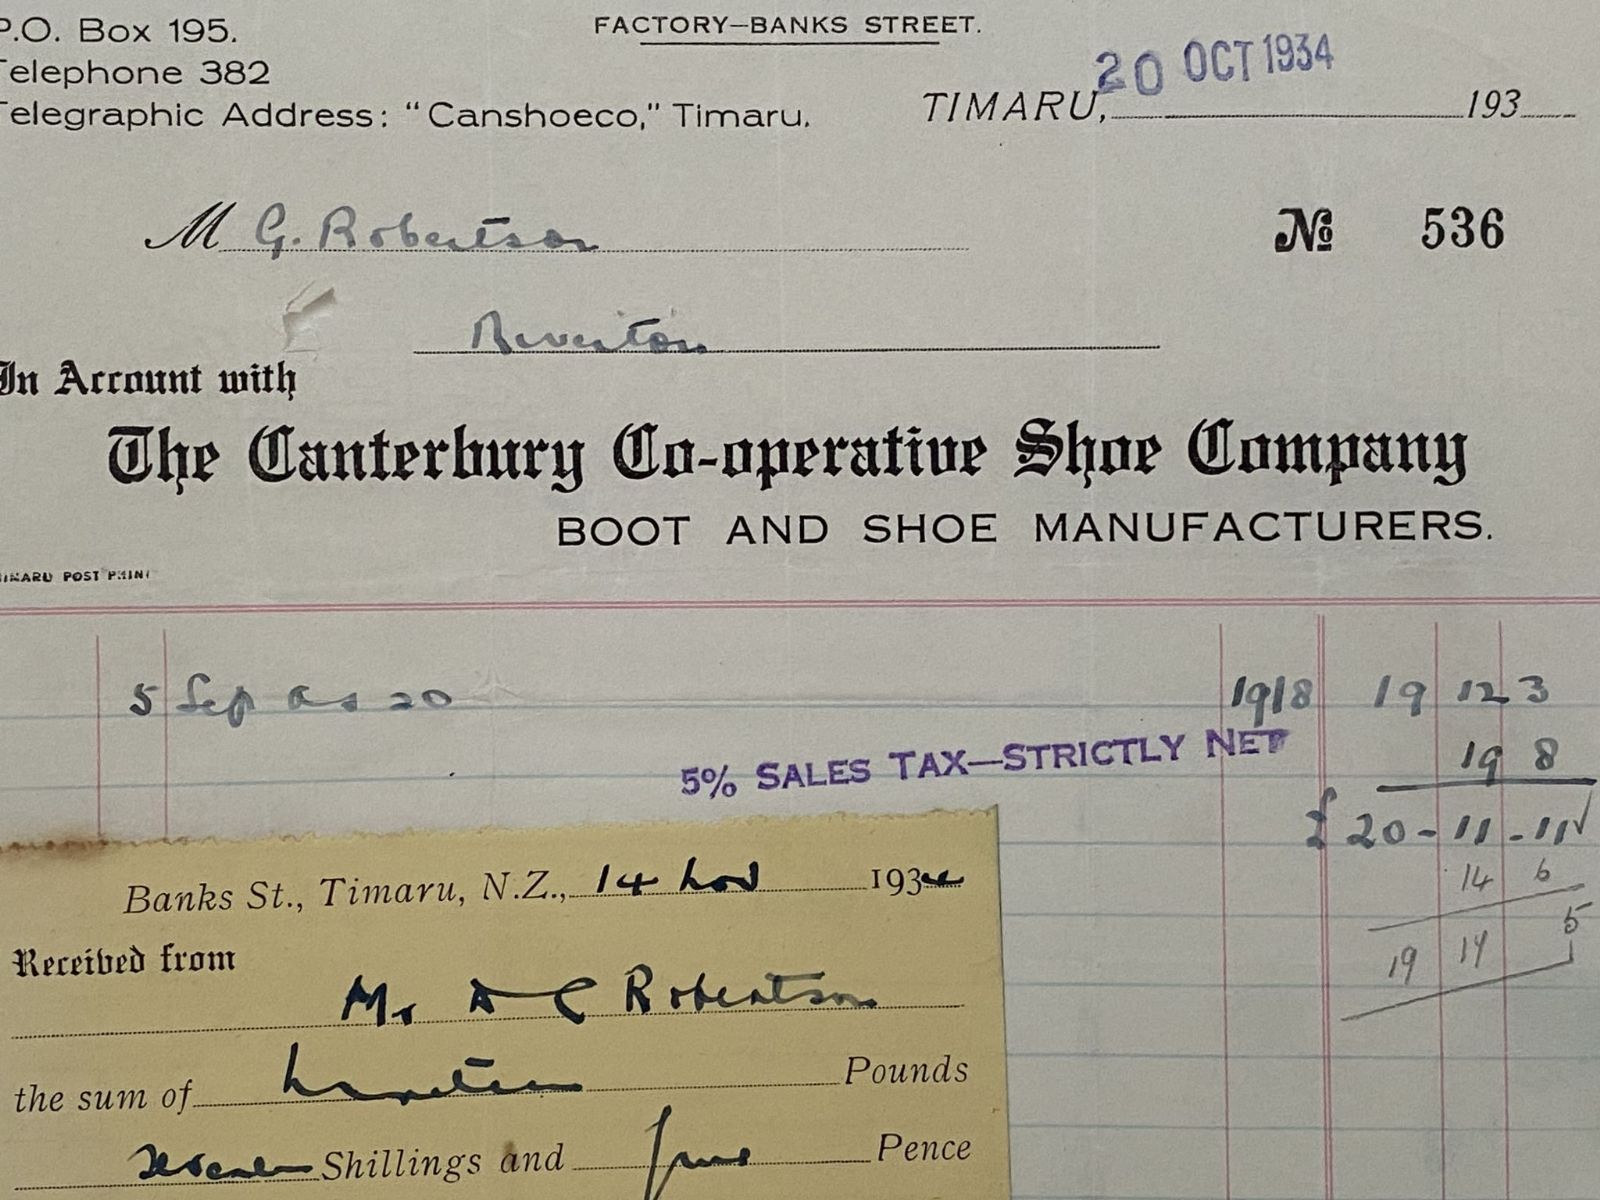 FACTORY—BANKS STREET.
P.O. Box 195.
Telephone 382
Telegraphic Address: "Canshoeco," Timaru.
TIMARU, 20 OCT 1934 193
M G. Robertson
No 536
Riverton
In Account with
The Canterbury Co-operative Shoe Company
BOOT AND SHOE MANUFACTURERS.
TIMARU POST PRINT
5 Sep a s 20 1918 19 12 3
5% SALES TAX—STRICTLY NET 19 8
£ 20 - 11 - 11
14 6
19 17 5
Banks St., Timaru, N.Z., 14 Nov 1934
Received from
Mr A C Robertson
the sum of Nineteen Pounds
Seventeen Shillings and five Pence